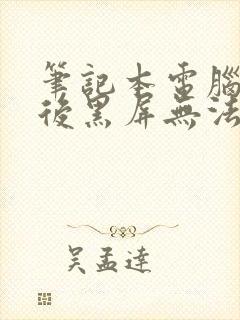 筆記本電腦
後黑屏無法
吳孟達